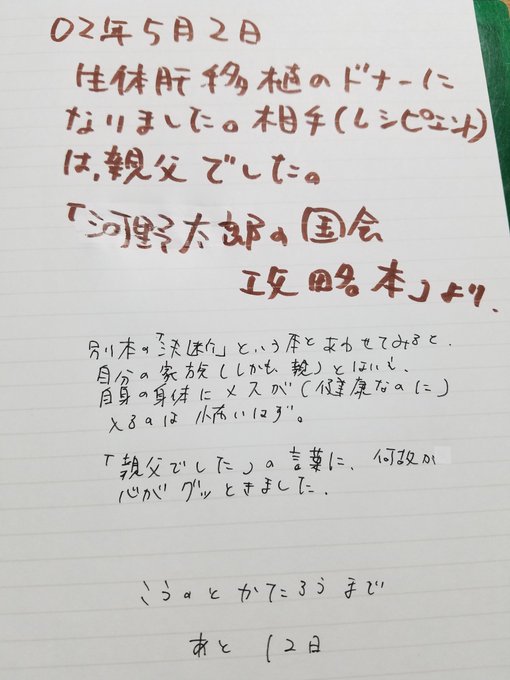 02年5月2日
生体肝移植のドナーに
なりました。相手(レシピエント)
は、親父でした。
「河野太郎の国会
攻略本」より、
別本の「決断」という本とあわせてみると、
自分の家族(しかも親)とはいえ、
自身の身体にメスが(健康なのに)
入るのは怖いはず。
「親父でした」の言葉に、何故か
心がグッときました。
こうのとかたろうまで
あと12日